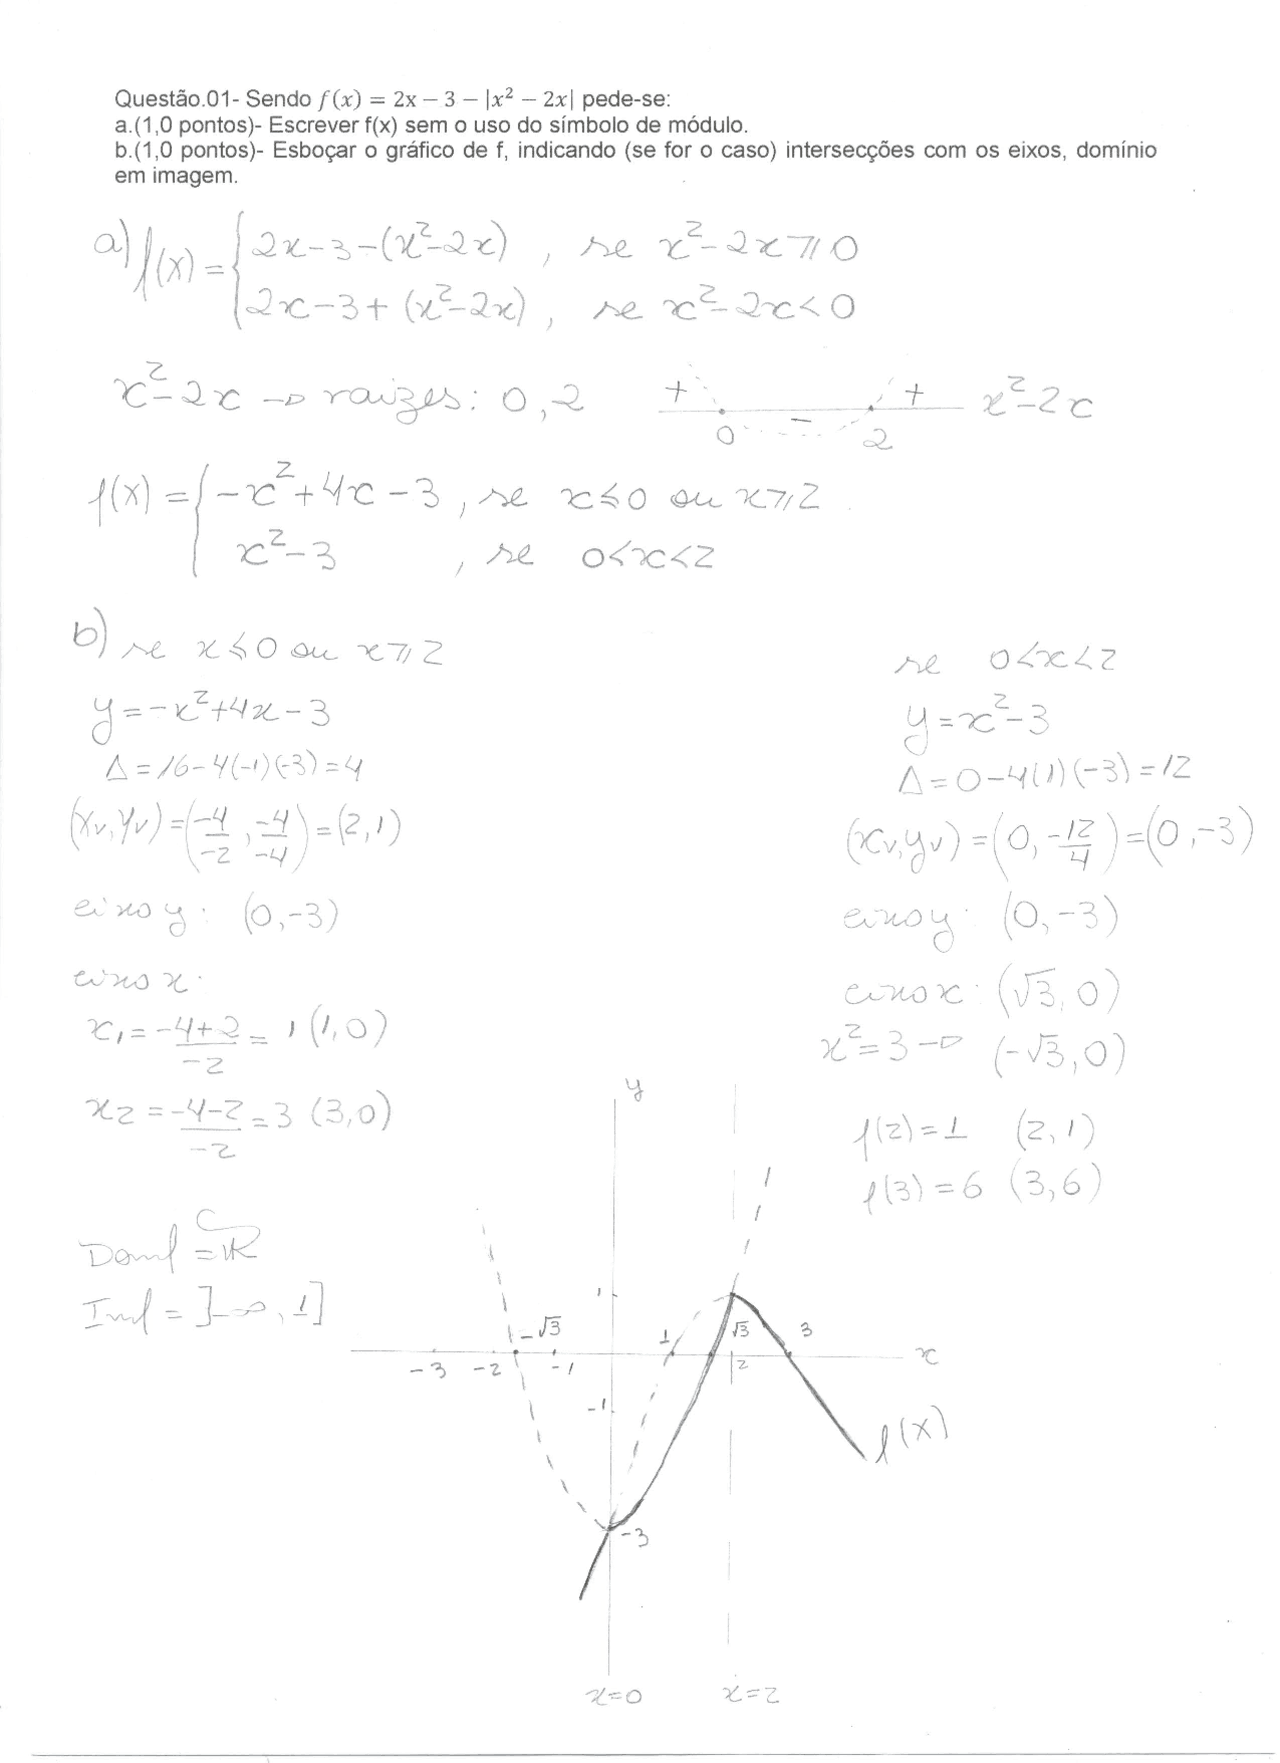 Questão.01- Sendo f(x) = 2x − 3 − |x² − 2x| pede-se:
a.(1,0 pontos)- Escrever f(x) sem o uso do símbolo de módulo.
b.(1,0 pontos)- Esboçar o gráfico de f, indicando (se for o caso) intersecções com os eixos, domínio
em imagem.
a) f(x) = { 2x-3-(x²-2x) , se x²-2x ⩾ 0
2x-3+(x²-2x) , se x²-2x < 0
x²-2x → raizes: 0,2 + 0 - 2 + x²-2x
f(x) = { -x²+4x-3 , se x ⩽ 0 ou x ⩾ 2
x²-3 , se 0<x<2
b) se x ⩽ 0 ou x ⩾ 2
y = -x²+4x-3
Δ = 16-4(-1)(-3) = 4
(xv, yv) = (-4/-2 , -4/-4) = (2,1)
eixo y: (0,-3)
eixo x:
x₁ = (-4+2)/-2 = 1 (1,0)
x₂ = (-4-2)/-2 = 3 (3,0)
Domf = ℝ
Imf = ]-∞, 1]
se 0<x<2
y = x²-3
Δ = 0-4(1)(-3) = 12
(xv, yv) = (0, -12/4) = (0,-3)
eixo y: (0,-3)
eixo x: (√3, 0)
x² = 3 → (-√3, 0)
f(2) = 1 (2,1)
f(3) = 6 (3,6)
y
1
-√3 1 √3 3
-3 -2 -1 2 x
-1
f(x)
-3
x=0 x=2